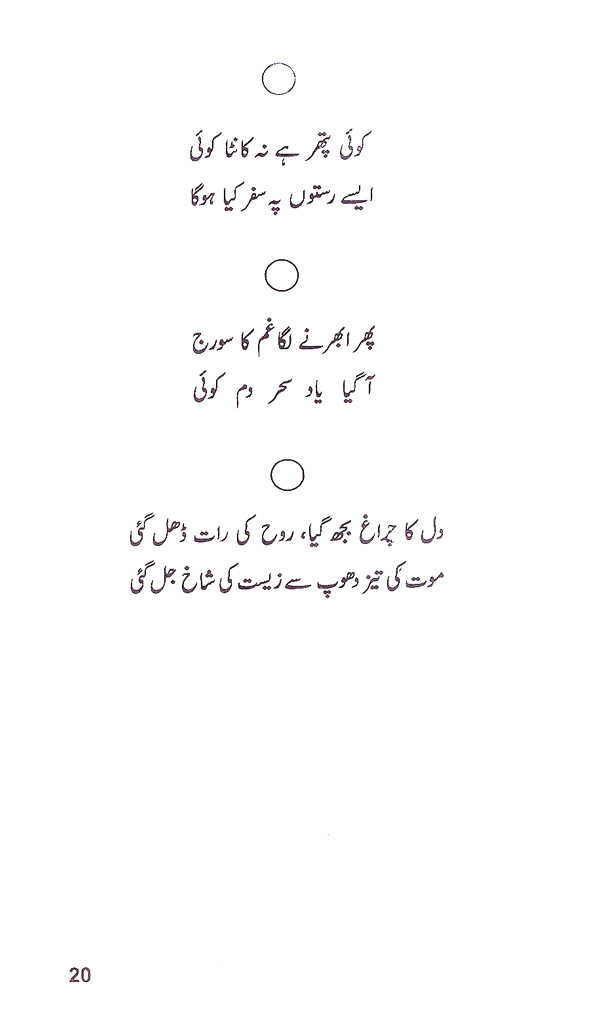 کوئی پتھر ہے نہ کانٹا کوئی
ایسے رستوں پہ سفر کیا ہوگا
پھر ابھرنے لگا غم کا سورج
آ گیا یاد سحر دم کوئی
دل کا چراغ بجھ گیا، روح کی رات ڈھل گئی
موت کی تیز دھوپ سے زیست کی شاخ جل گئی
20